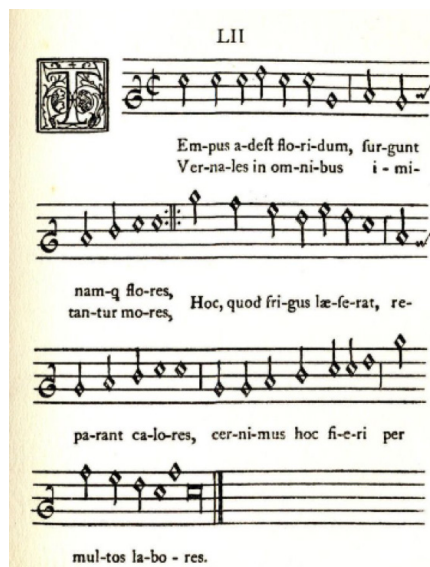 LII
T
Em-pus a-deſt flo-ri-dum, ſur-gunt
Ver-na-les in om-ni-bus i - mi-
nam-q̨ flo-res,
tan-tur mo-res,
Hoc, quod fri-gus læ-ſe-rat, re-
pa-rant ca-lo-res, cer-ni-mus hoc fi-e-ri per
mul-tos la-bo - res.